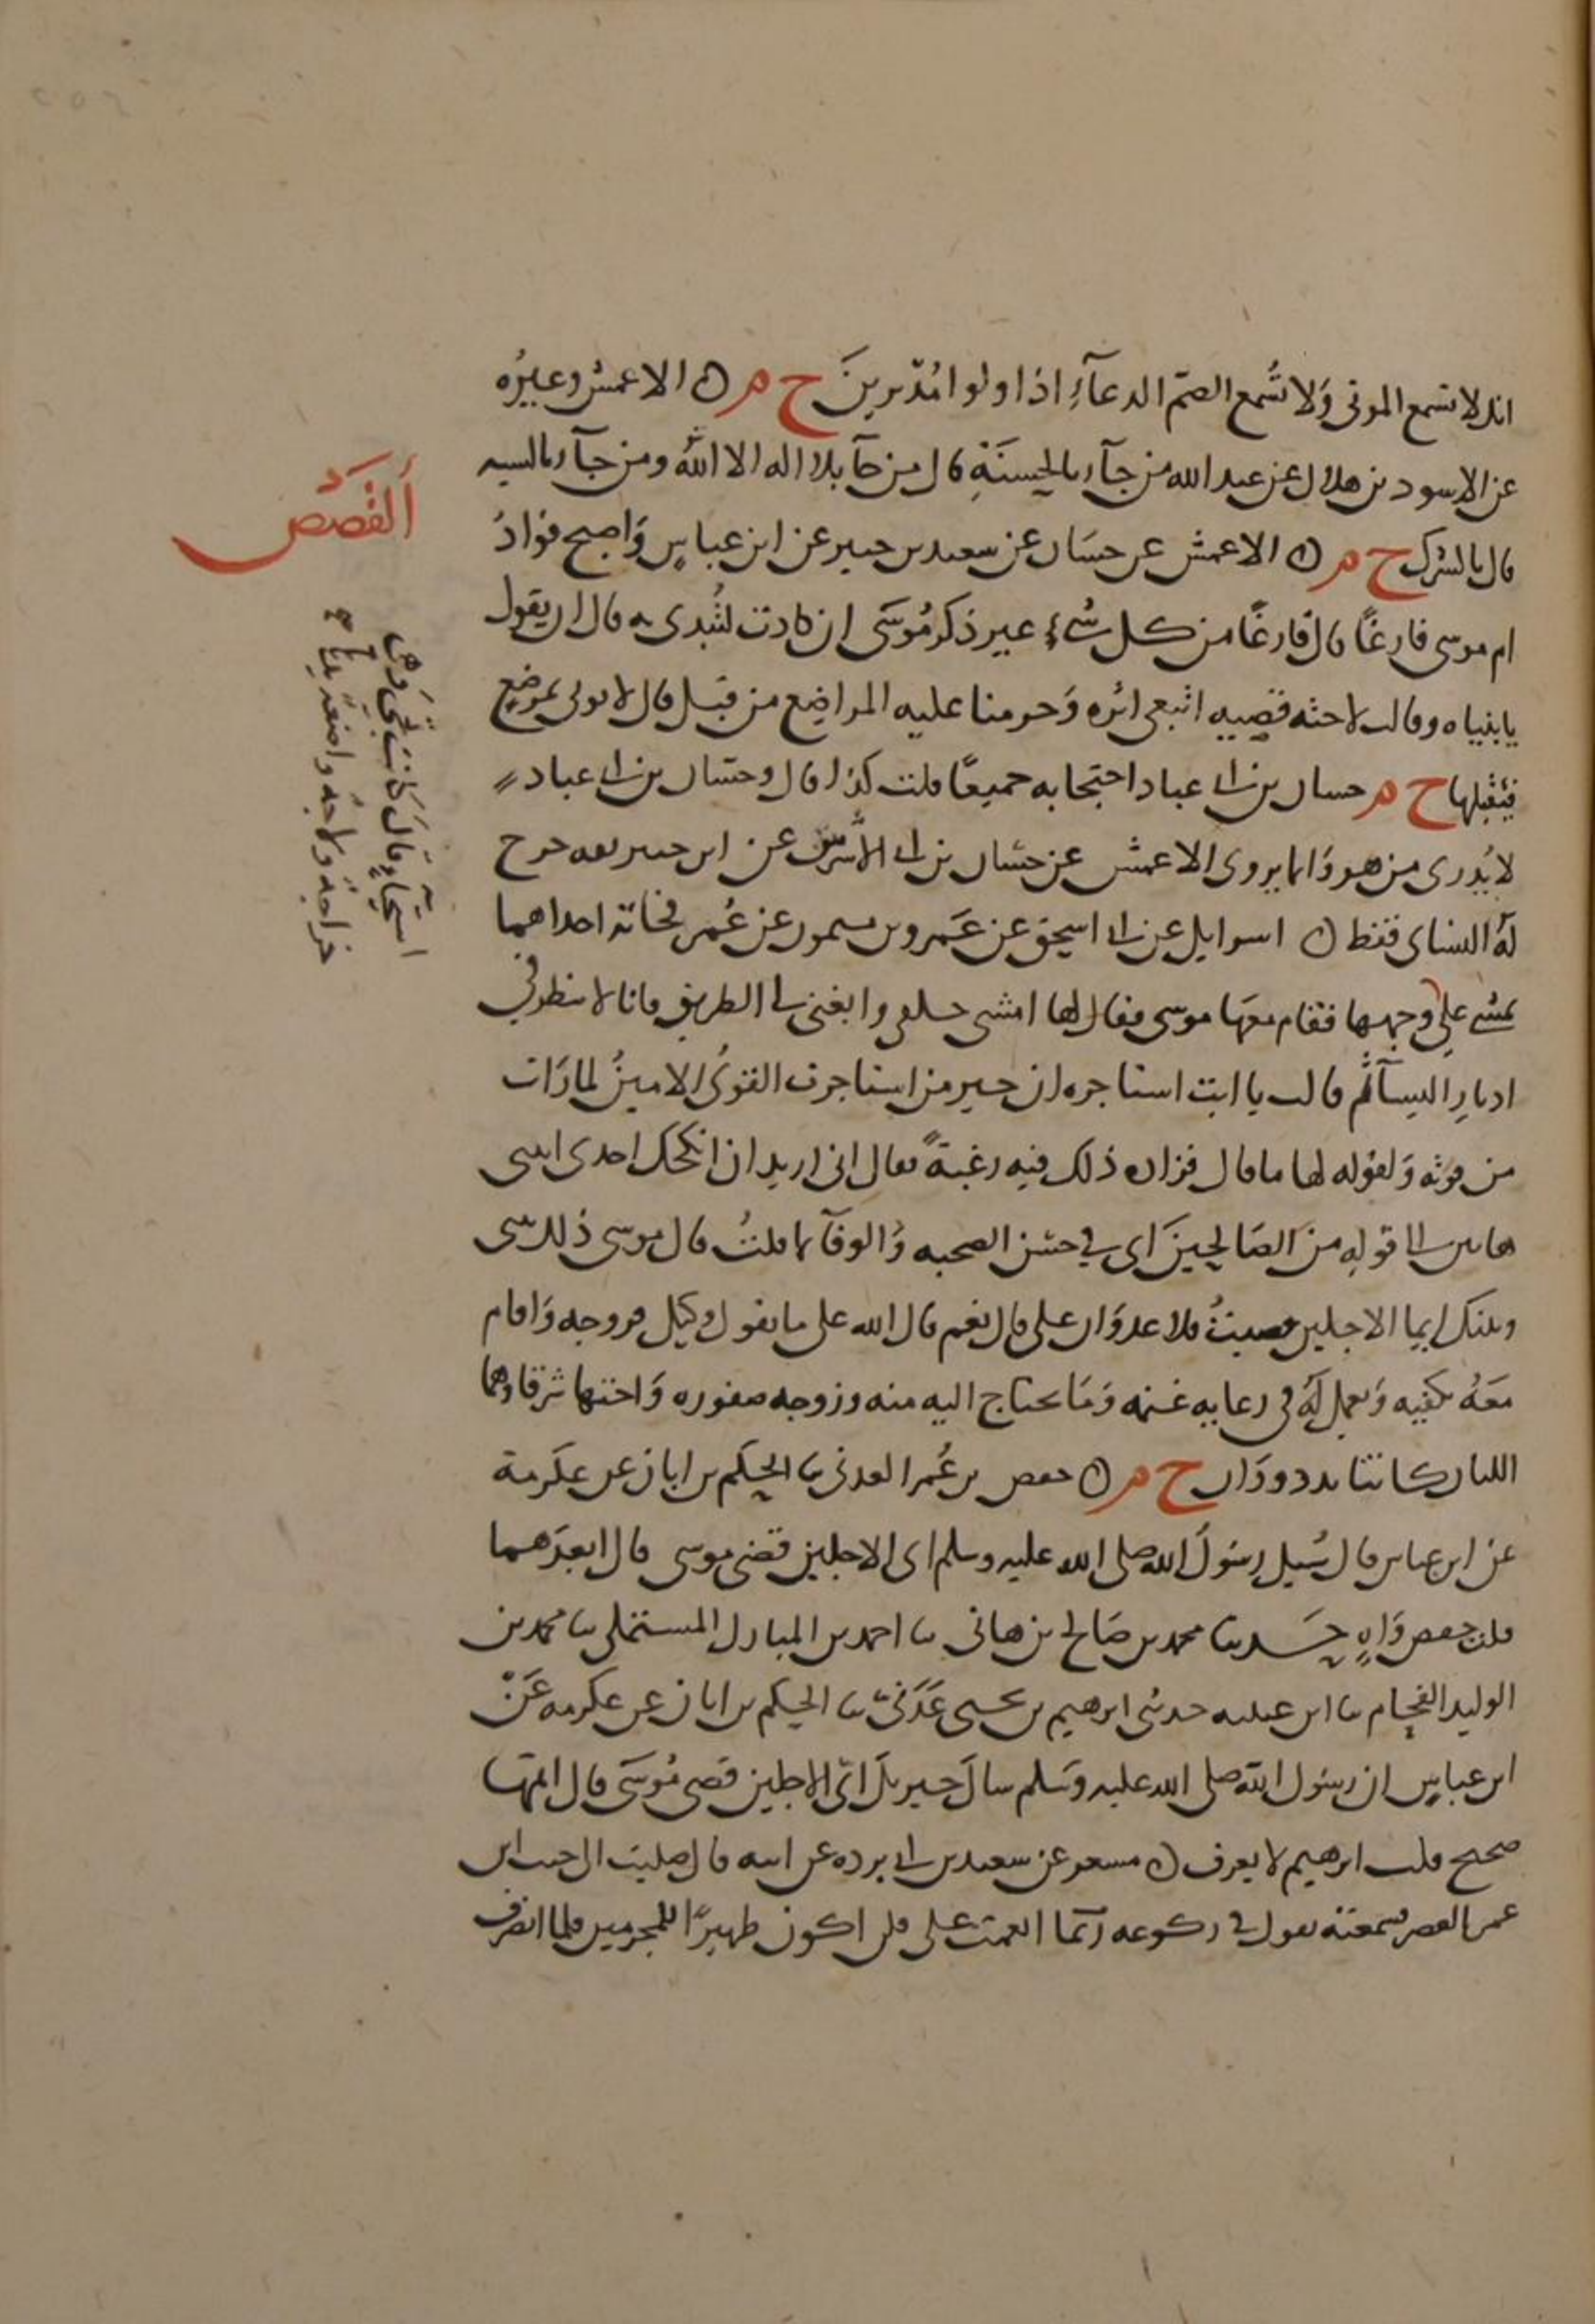 انك لا تسمع الموتى وَلا تُسْمع الصمّ الدعآءَ اذا ولوا مُدْبرينَ خ م ۞ الاعمش وغيرُه
عن الاسود بن هلال عن عبد الله من جآء بالحسنَةِ قال من جآ بلا اله الا اللهُ ومن جآء بالسيه
قال بالشرك خ م ۞ الاعمش عن حسَان عن سعيد بن جبير عن ابن عباسٍ وَاصبح فوادُ
ام موسى فارغًا قال فارغًا من كل شيءٍ غير ذكر مُوسَى ان كادت لتُبدى به قال ان يقول
يابنياه وقالت لاخته قصيه اتبعى اثره وَحرمنا عليه المراضِع من قبل قال لا يوتى بمرضعٍ
فيَقْبلها خ م حسان بن ابى عباد احتجا به جميعًا قلت كذا قال وحسّان بن ابى عباد
لا يُدرى من هو وَانما يروى الاعمش عن حسّان بن ابى الأشرس عن ابن جبير ثقه خرج
لَهُ النساى فقط ۞ اسرايل عن ابى اسحق عن عَمرو بن ميمون عن عُمر فجاته احداهما
تمشي على وجهها فقام معَها موسى فقال لها امشى خلفى وانعتى لى الطريق فانا لا ننظر فى
ادبارِ النسآء ثم قالت يا ابت استاجره ان خير من استاجرت القوىُ الامينُ لما رَات
من قوته وَلقوله لها ما قال فزاده ذلك فيه رغبةً فقال انى اريد ان انكحك احدى ابنتى
هاتين الى قولِه من الصَالحينَ اى فى حسْن الصحبه وَالوفآ بما قلتُ قال موسى ذلك بينى
وبينك ايما الاجلين قضيتُ فلا عدوَان على قال نعم قال الله على ما نقول وكيل فزوجه وَاقام
معَهُ يكفيه وَيعمل لَهُ فى رعايه غنمه وَمَا يحتاج اليه منه وزوجه صفوره وَاختها شرفا وهما
اللتان كانتا تذودَان خ م ۞ حفص بن عُمر العدنى ثنا الحَكم بن ابان عن عكرمة
عن ابن عباس قال سُيل رسُولُ الله صلى الله عليه وسلم اى الاجلين قضى موسى قال ابعدَهما
قلت حفص وَاهٍ ثنا محمد بن صَالح بن هانى ثنا احمد بن المبارك المستملى ثنا محمد بن
الوليد الفحام ثنا ابن عيينه حدثنى ابرهيم بن يحيى عَدَنىّ ثنا الحكم بن ابان عن عكرمه عَنْ
ابن عباسٍ ان رسُول الله صلى الله عليه وسَلم سالَ جبريلَ اىّ الاجلين قضى مُوسَى قال اتمهما
صحيح قلت ابرهيم لا يعرف ۞ مسعر عن سعيد بن ابى برده عن ابيه قال صليت الى جنب ابن
عمر العصر فسمعته يقول فى ركوعه ربّ بما انعمت على فلن اكون ظهيرًا للمجرمين فلما انصرف
ألقَصَص
خراجةً ولاجةً واضعةً يدها